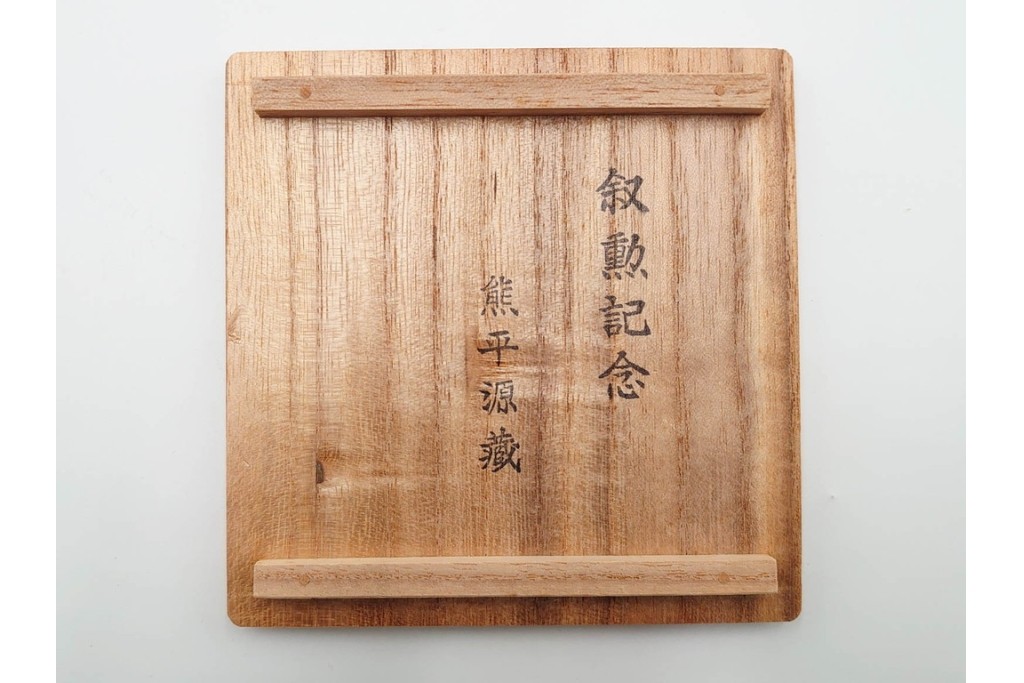 叙勲記念
熊平源藏